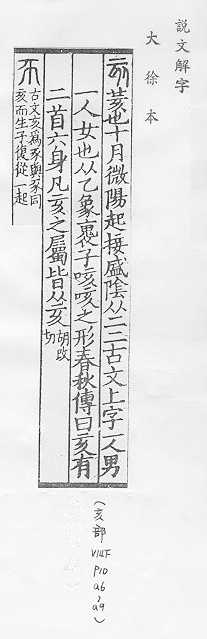 說文解字
大徐本
亥荄也十月微陽起接盛陰从二二古文上字一人男
一人女也从乙象褢子咳咳之形春秋傳曰亥有
二首六身凡亥之屬皆从亥胡改切
古文亥爲豕與豕同
亥而生子復從一起
(亥部 P10 a6, a9)